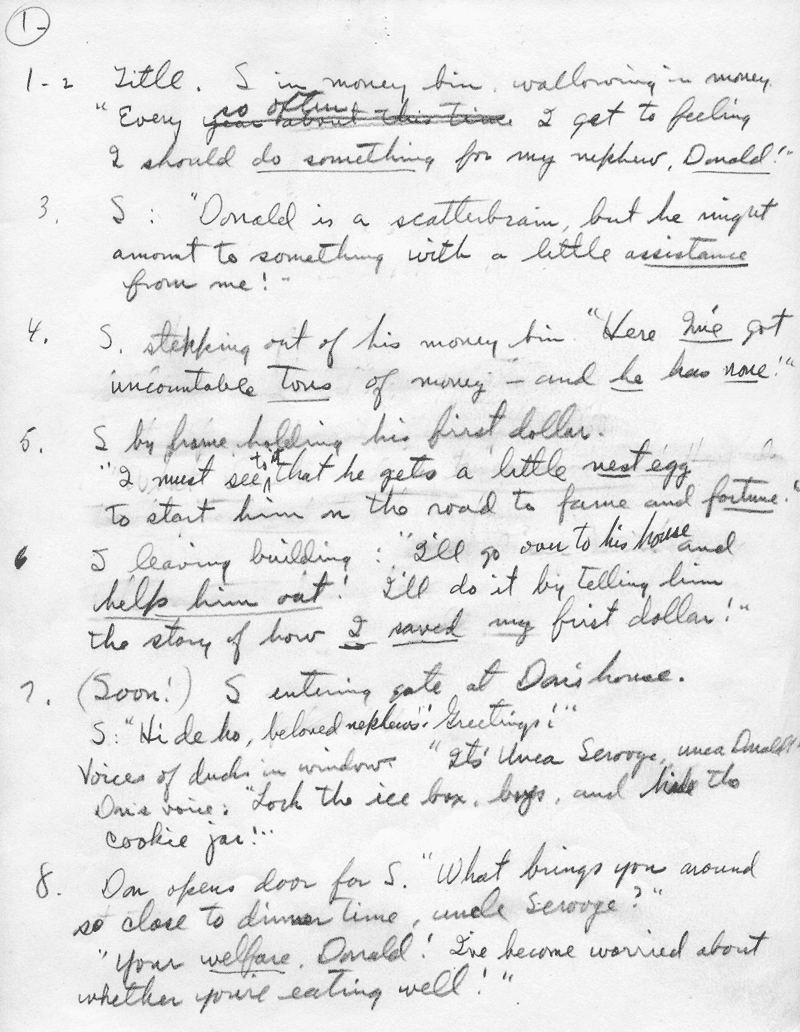 1-
1-2 Title. S in money bin, wallowing in money.
so often
"Every year about this time I get to feeling
I should do something for my nephew, Donald!"
3. S: "Donald is a scatterbrain, but he might
amount to something with a little assistance
from me!"
4. S. stepping out of his money bin "Here I've got
uncountable tons of money — and he has none!"
5. S by frame holding his first dollar.
to it
"I must see that he gets a little nest egg
to start him on the road to fame and fortune."
6 S leaving building: "I'll go over to his house and
help him out! I'll do it by telling him
the story of how I saved my first dollar!"
7. (Soon!) S entering gate at Don's house.
S: "Hi de ho, beloved nephews! Greetings!"
Voices of ducks in window "It's Unca Scrooge, unca Donald!"
Don's voice: "Lock the ice box, boys, and hide the
cookie jar!"
8. Don opens door for S. "What brings you around
so close to dinner time, uncle Scrooge?"
"Your welfare, Donald! I've become worried about
whether you're eating well!"